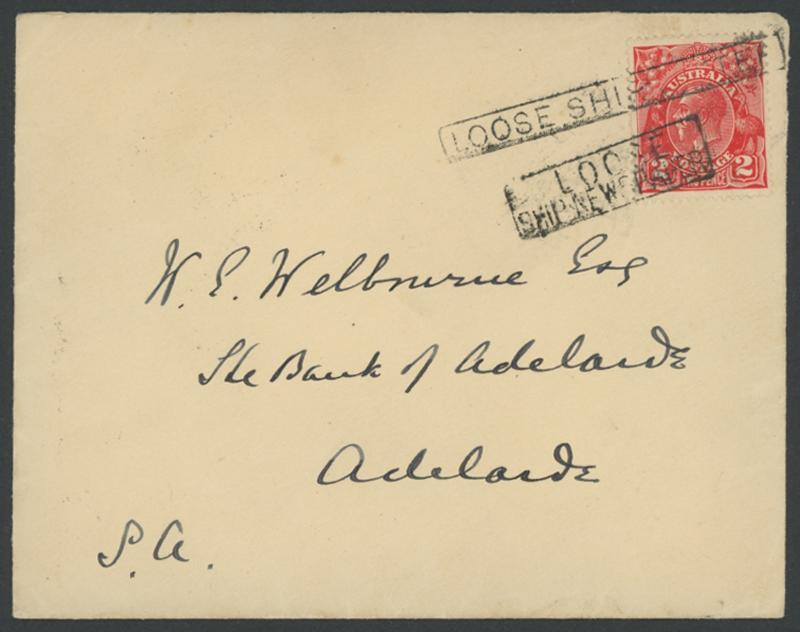 LOOSE SHIP LETTER
LOOSE
SHIP NEWSPAPER
AUSTRALIA
POSTAGE
2D 2D
TWO PENCE
W. E. Welbourne Esq
The Bank of Adelaide
Adelaide
S.A.